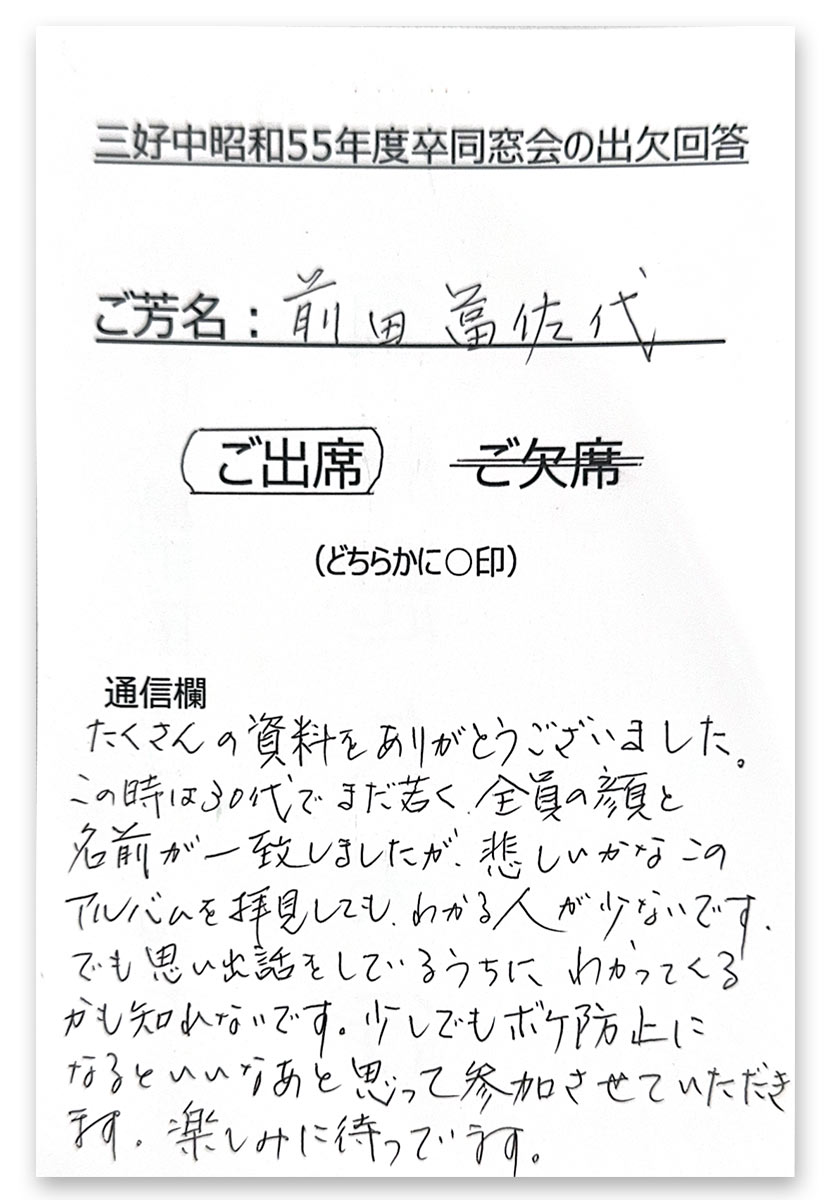 三好中昭和55年度卒同窓会の出欠回答
ご芳名：前田富佐代
ご出席 ご欠席
（どちらかに○印）
通信欄
たくさんの資料をありがとうございました。
この時は30代でまだ若く、全員の顔と
名前が一致しましたが、悲しいかなこの
アルバムを拝見しても、わかる人が少ないです、
でも思い出話をしているうちに、わかってくる
かも知れないです。少しでもボケ防止に
なるといいなあと思って参加させていただき
ます。楽しみに待っています。